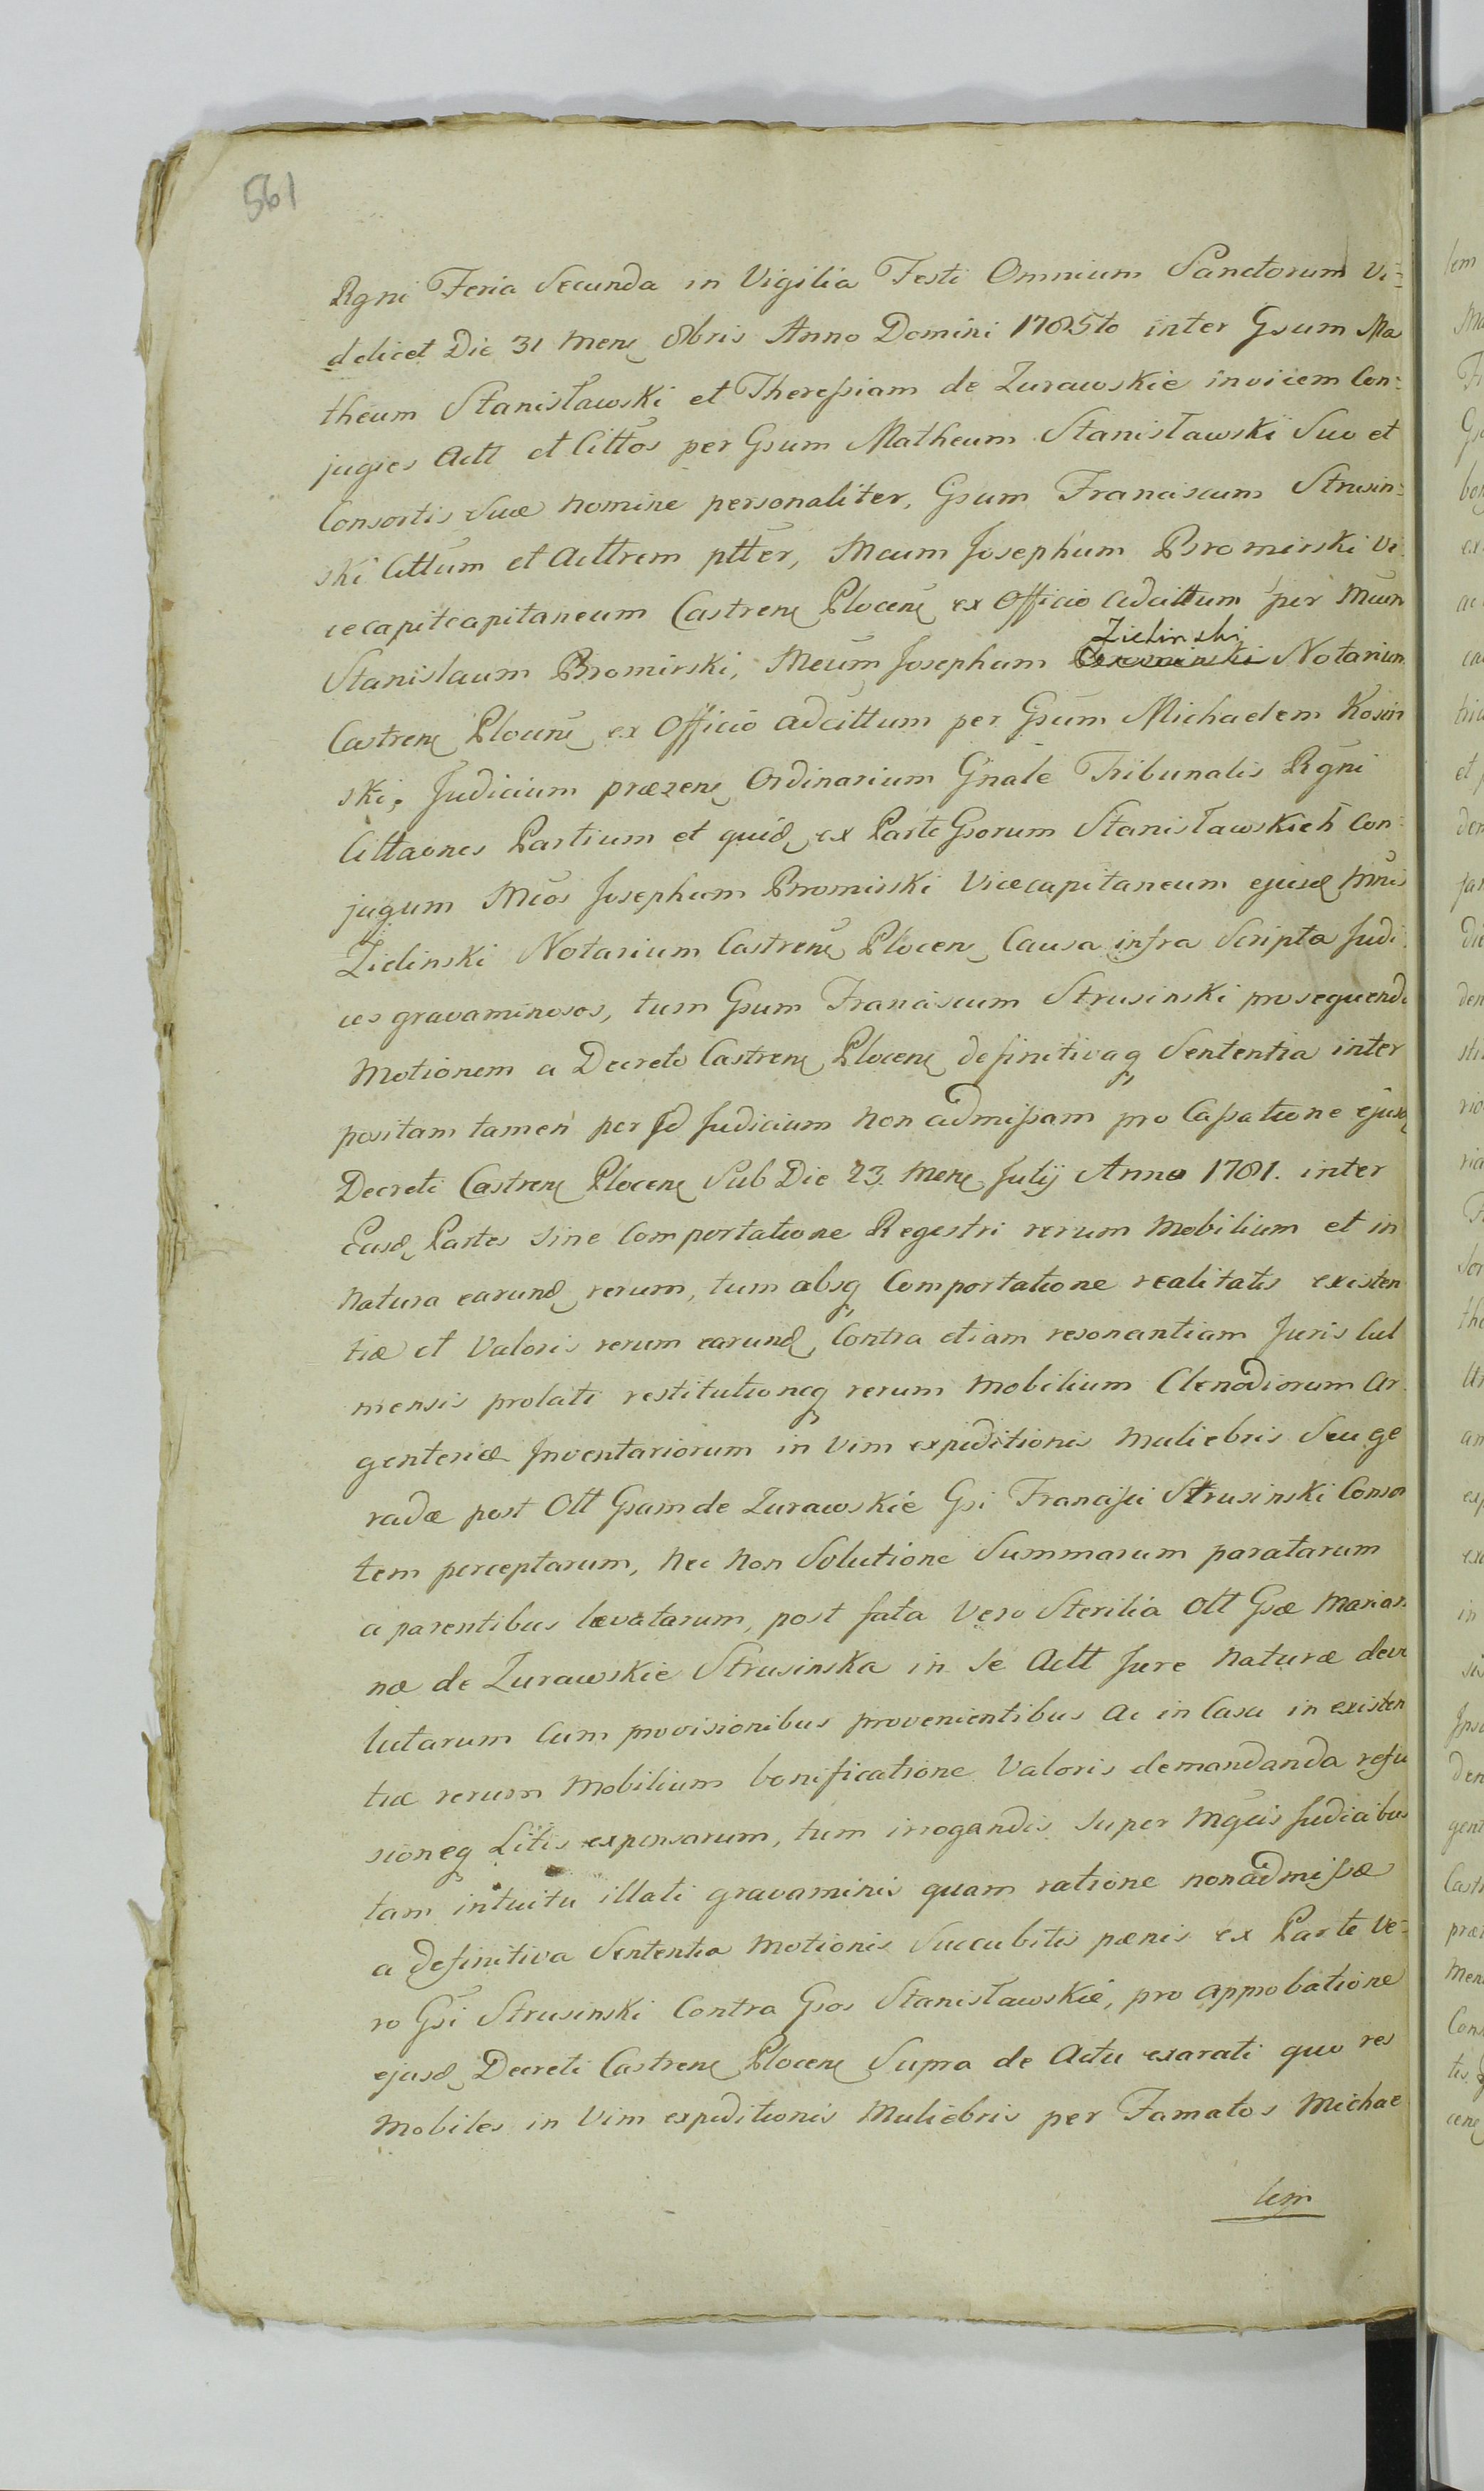 561
Rgni Feria Secunda in Vigilia Festi Omnium Sanctorum Vi=
delicet Die 31 Mens 8bris Anno Domini 1785to inter Gsum Ma
theum Stanisławski et Theressiam de Zurawskie invicem Con=
juges Actt et Cittos per Gsum Matheum Stanisławski Suo et
Consortis Suæ nomine personaliter, Gsum Franciscum Strusin=
ski Cittum et Acttrem ptter, Mcum Josephum Bromirski Vi
cecapitcapitaneum Castrens Plocens ex Officio adcittum per Mcum
Zielinski
Stanislaum Bromirski, Mcum Josephum Notarium
Castrens Plocens ex Officio adcittum per Gsum Michaelem Kosin
ski, Judicium præzens Ordinarium Gnale Tribunalis Rgni
Cittaones Partium et quid ex Parte Gsorum Stanisławskich Con=
jugum Mcos Josephum Bromirski Vicecapitaneum ejusd
Zielinski Notarium Castrens Plocens Causa infra Scripta Judi
ces gravaminosos, tum Gsum Franciscum Strusinski prosequendo
Motionem a Decreto Castrens Plocens definitivaq Sententia inter
positam tamen per Id Judicium non admissam pro Cassatione ejusd
Decreti Castrens Plocens Sub Die 23 Mens Julij Anno 1781. inter
Easd Partes sine Comportatione Regestri rerum Mobilium et in
Natura earund rerum, tum absq Comportatione realitatis existen
tiæ et Valoris rerum earund Contra etiam resonantiam Juris Cul
mensis prolati restitutioneq rerum Mobilium Clenodiorum Ar
genteriæ Inventariorum in Vim expeditionis Muliebris Seu ge
radæ post Ott Gsam de Zurawskie Gsi Francisci Strusinski Conso
tem perceptarum, nec non Solutione Summarum paratarum
a parentibus levatarum, post fata Vero Sterilia Ott Gsæ Marian
næ de Zurawskie Strusinska in Se Actt Jure Naturæ devo
lutarum Cum provisionibus provenientibus ac in Casu in existen
tiæ rerum Mobilium bonificatione Valoris demandanda refu
sioneq Litis expensarum, tum irrogandis super Mgcis Judicibus
tam intuitu illati gravaminis quam ratione non admissæ
a definitiva Sententia Motionis Succubitis pænis ex Parte Ve=
ro Gsi Strusinski Contra Gsos Stanisławskie, pro approbatione
ejusd Decreti Castrens Plocens Supra de Actu exarati quo res
Mobiles in Vim expeditionis Muliebris per Famatos Michae
lem